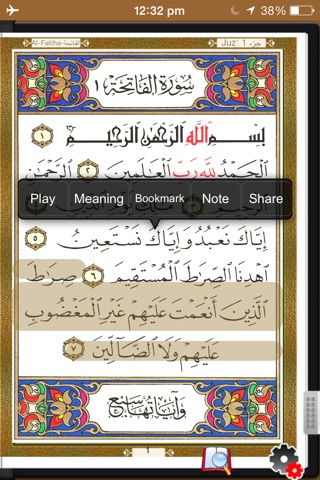 12:32 pm
38%
Al-Fatiha-الفاتحة
Juz' 1 جزء
سُورَةُ الفَاتِحَة ١
بِسْمِ اللَّهِ الرَّحْمَٰنِ الرَّحِيمِ ١
الْحَمْدُ لِلَّهِ رَبِّ الْعَالَمِينَ ٢ الرَّحْمَٰنِ
Play Meaning Bookmark Note Share
إِيَّاكَ نَعْبُدُ وَإِيَّاكَ نَسْتَعِينُ ٥
اهْدِنَا الصِّرَاطَ الْمُسْتَقِيمَ ٦ صِرَاطَ
الَّذِينَ أَنْعَمْتَ عَلَيْهِمْ غَيْرِ الْمَغْضُوبِ
عَلَيْهِمْ وَلَا الضَّالِّينَ ٧
وَآيَاتُهَا سَبْعٌ
1